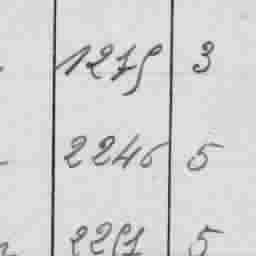 1275 3
2246 5
2251 5